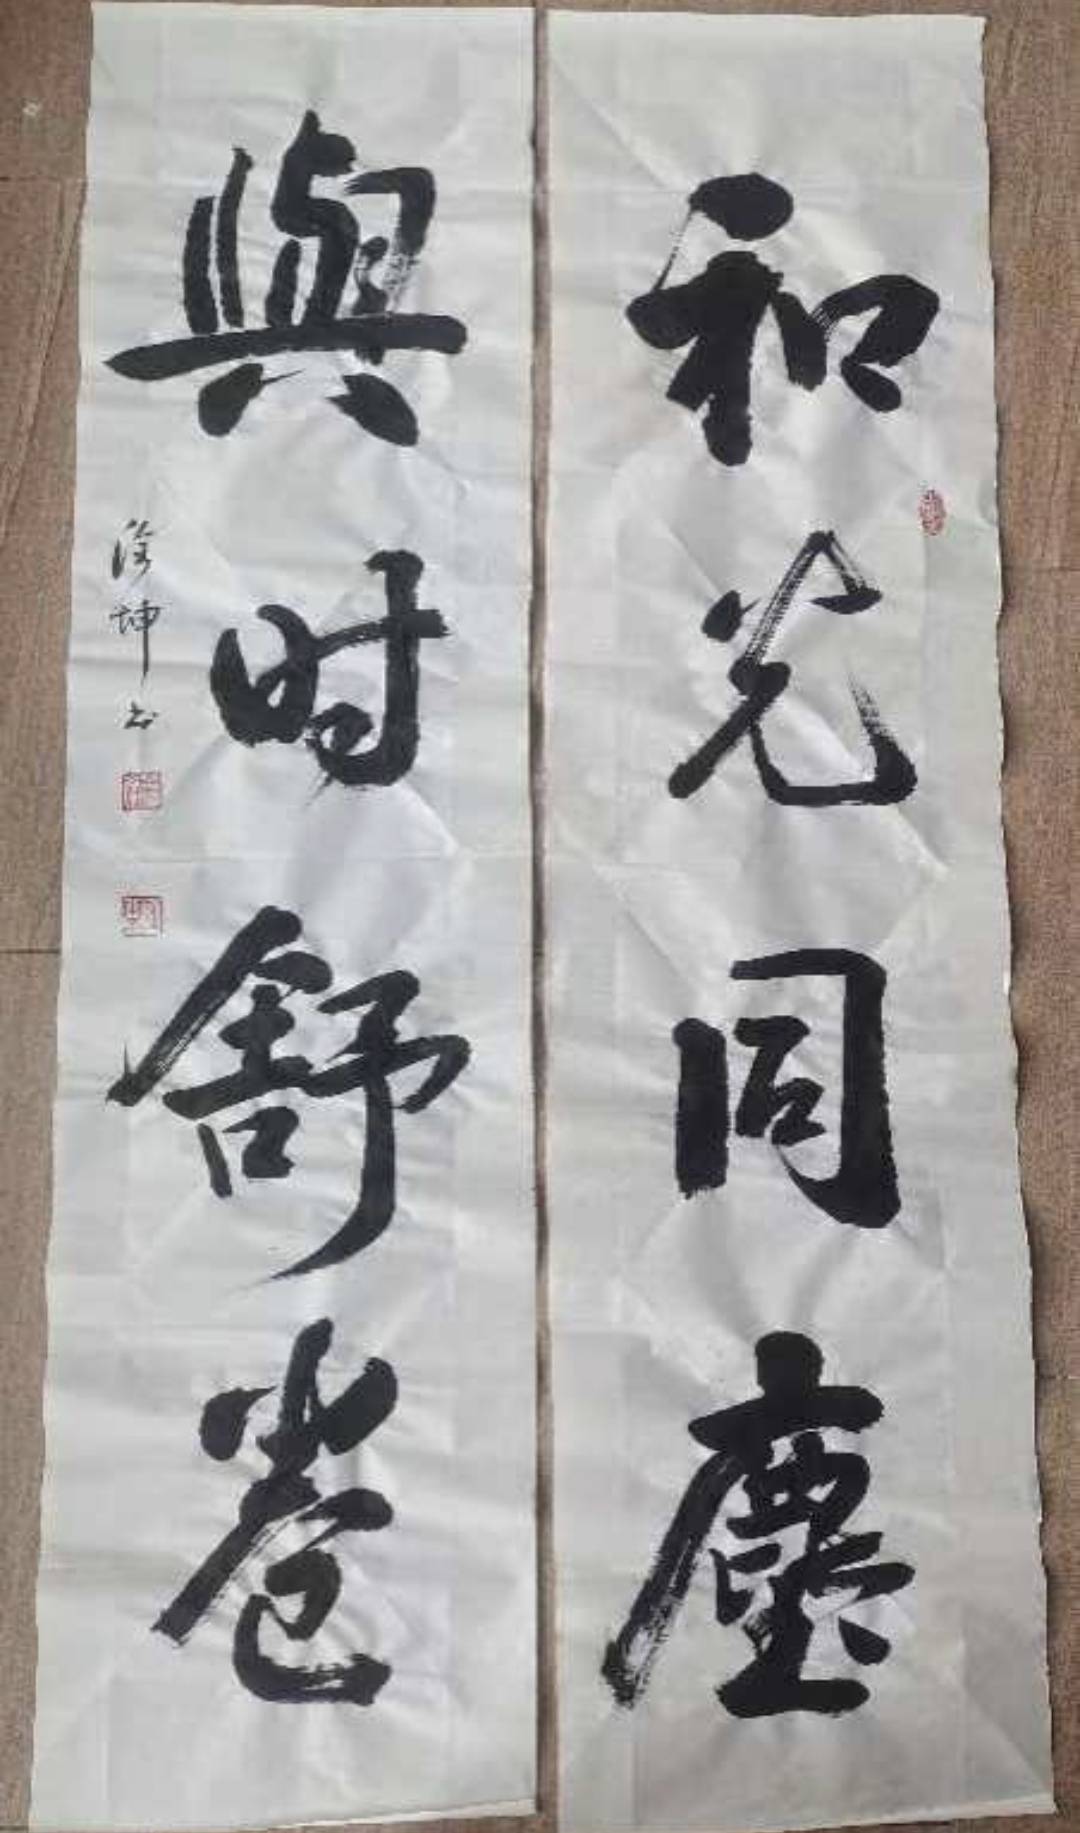 和光同塵
與时舒卷
徐坤书